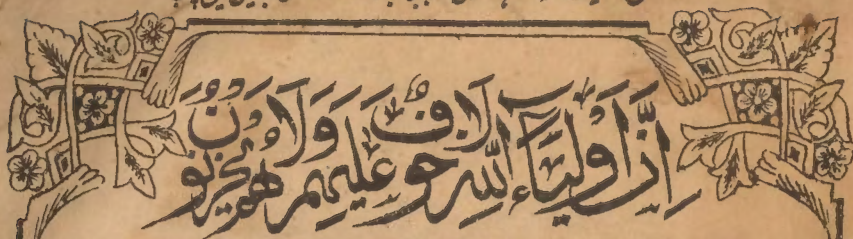 اِنَّ اَوْلِيَآءَ اللّٰهِ لَا خَوْفٌ عَلَيْهِمْ وَلَا هُمْ يَحْزَنُوْنَ